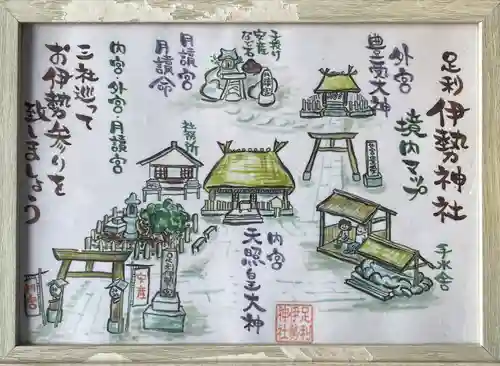 足利
伊勢神社
境内マップ
外宮
豊受大神
子授け
安産
なで石
月讀宮
月讀命
内宮・外宮・月讀宮
三社巡って
お伊勢参りを
致しましょう
社務所
内宮
天照皇大神
手水舎
足利
伊勢
神社